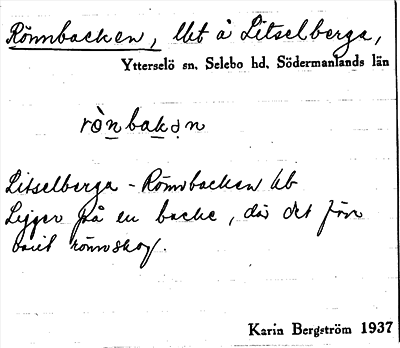 Rönnbacken, lht å Litselberga,
Ytterselö sn, Selebo hd, Södermanlands län
rònbakən
Litselberga - Rönnbacken kb
Ligger på en backe, där det förr
varit rönnskog.
Karin Bergström 1937